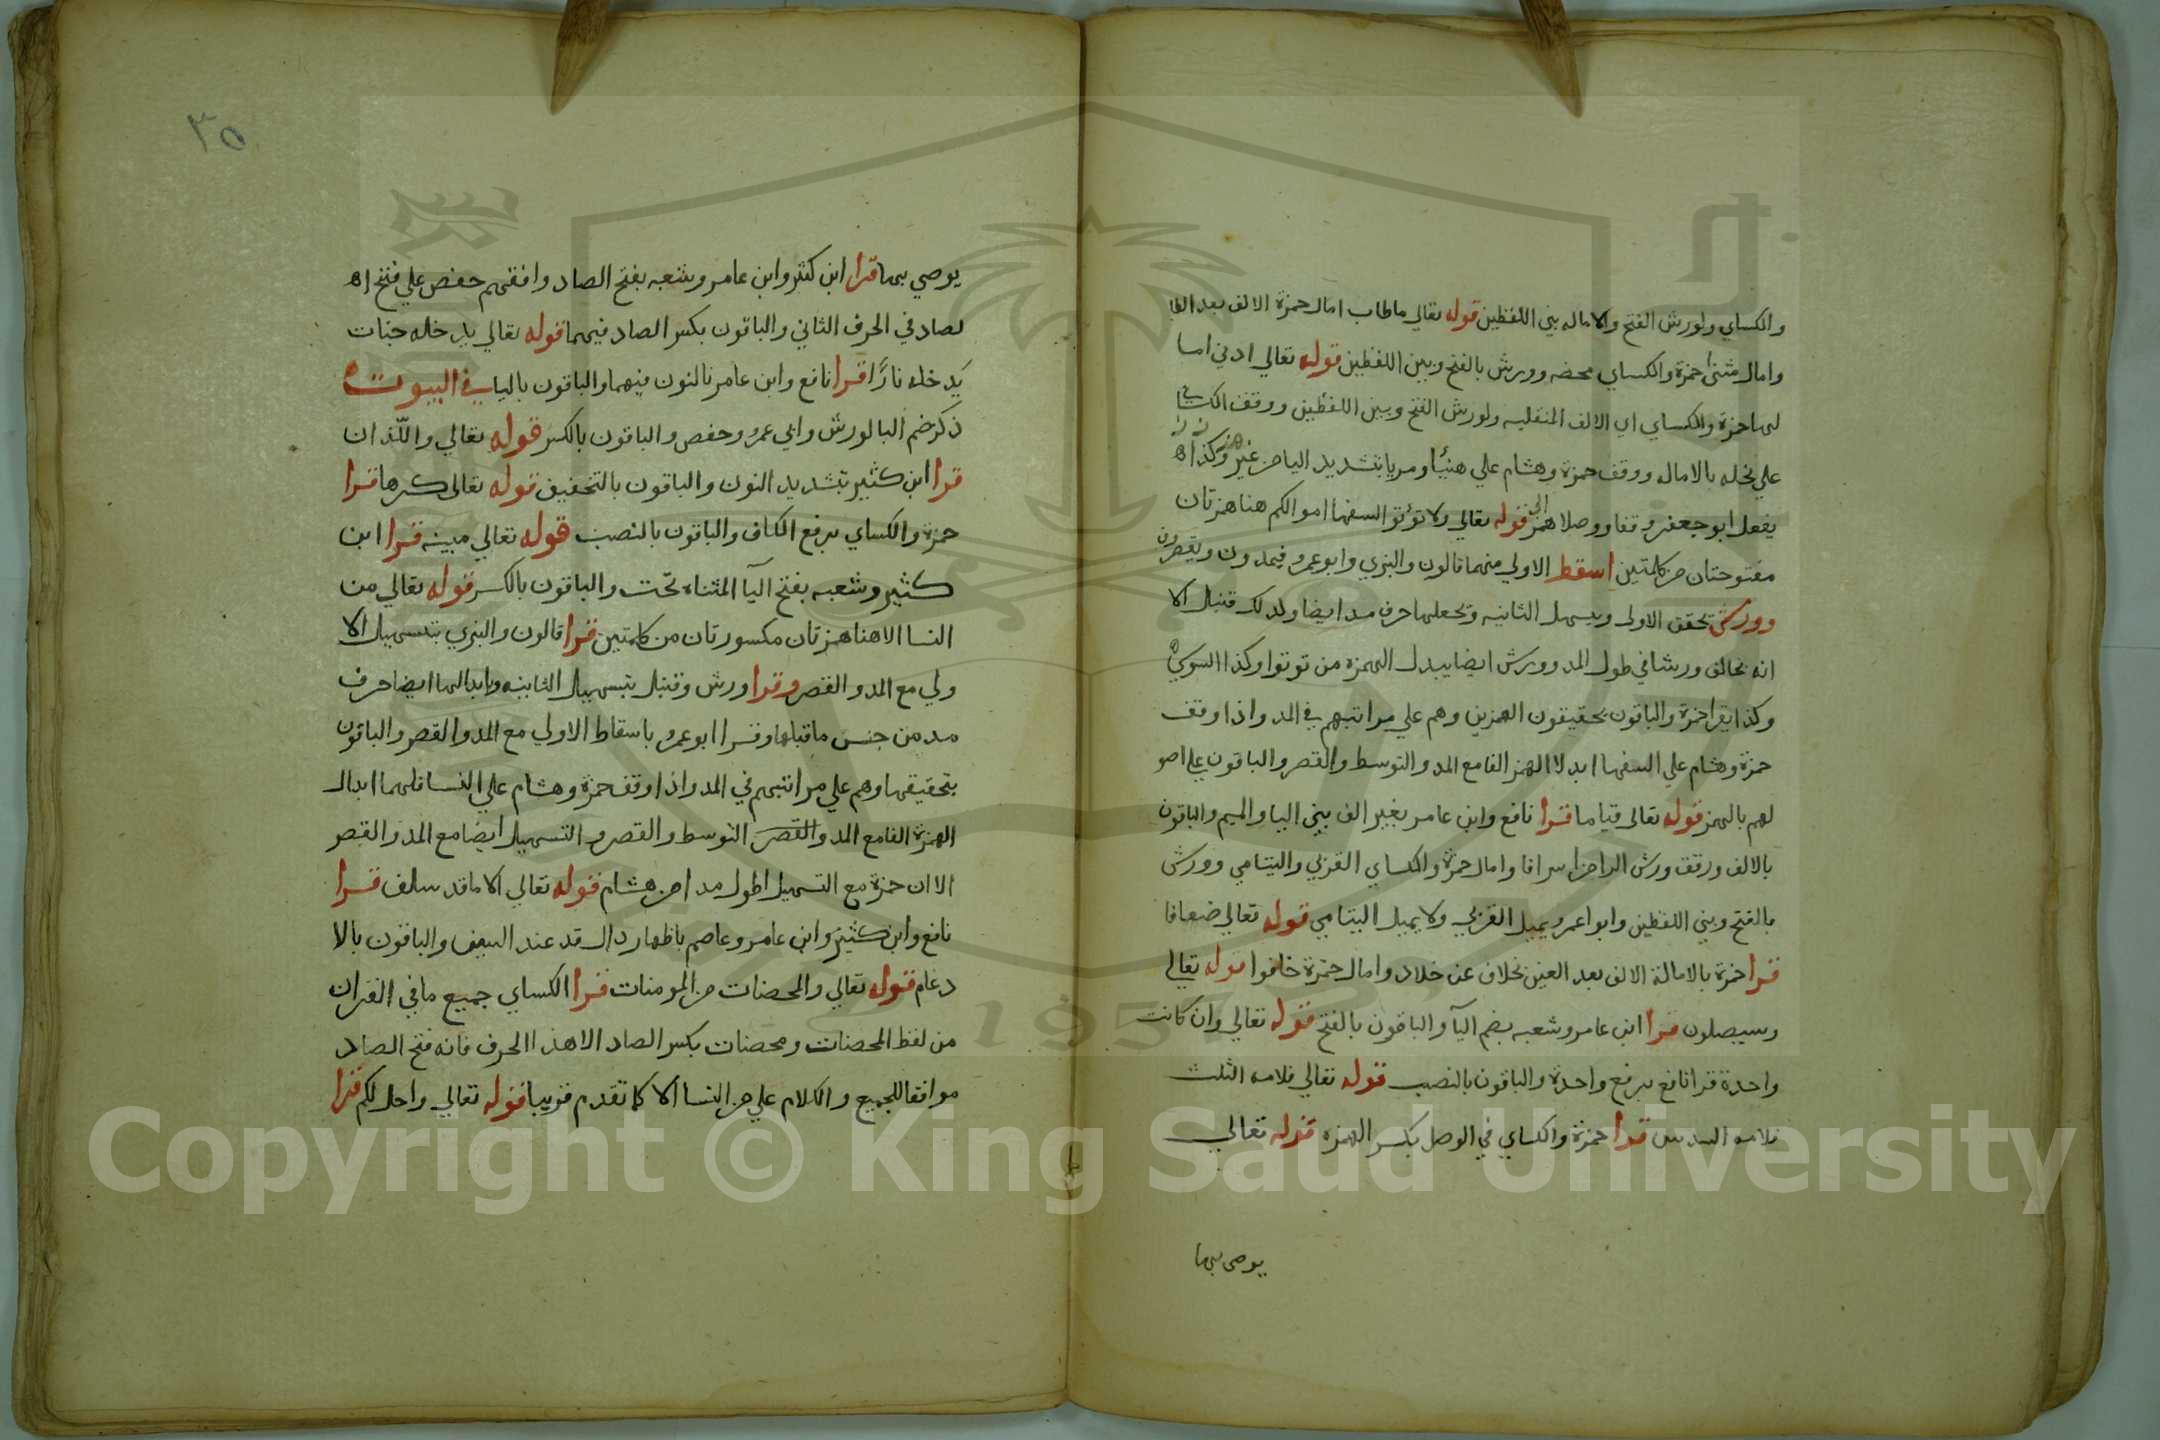 والكساي ولورش الفتح والاماله بين اللفظين قوله تعالي ماطاب امال حمزة الالف بعد الطا
وامال مثنى حمزة والكساي محضه وورش بالفتح وبين اللفظين قوله تعالي ادني اما
لها حمزة والكساي اي الالف المنقلبه ولورش الفتح وبين اللفظين ووقف الكساي
علي نحله بالاماله ووقف حمزة وهشام علي هنيئا ومريا بتشديد اليا من غير همز وكذا
يفعل ابو جعفر وقفا ووصلا قوله تعالي ولا تؤتوا السفها اموالكم هنا همزتان
مفتوحتان من كلمتين اسقط الاولي منهما قالون والبزي وابو عمرو فيمدون ويقصرون
وورش تحقق الاولى ويسهل الثانيه وتجعلها حرف مد ايضا ولذلك قنبل الا
انه يخالف ورشا في طول المد وورش ايضا يبدل الهمزه من توتوا وكذا السوسي
وكذا يقرا حمزة والباقون بحقيقون الهمزين وهم علي مراتبهم في المد واذا وقف
حمزة وهشام علي السفها ابدلا الهمز الفا مع المد والتوسط والقصر والباقون علي اصو
لهم بالهمز قوله تعالي قياما قرا نافع وابن عامر بغير الف بين اليا والميم والباقون
بالالف ورقق ورش الرا من اسرافا وامال حمزة والكساي القربي واليتامي وورش
بالفتح وبين اللفظين وابوا عمرو يميل القربي ولا يميل اليتامي قوله تعالي ضعافا
قرا حمزة بالامالة الالف بعد العين بخلاف عن خلاد وامال حمزة خافوا قوله تعالي
وسيصلون قرا ابن عامر وشعبه بضم اليا والباقون بالفتح قوله تعالي وان كانت
واحدة قرا نافع برفع واحدة والباقون بالنصب قوله تعالي فلامه الثلث
فلامه السدس قرا حمزة والكساي في الوصل بكسر الهمزه قوله تعالي
يوصى بها
٣٥
يوصي بها قرا ابن كثير وابن عامر وشعبه بفتح الصاد وافقهم حفص علي فتح ا
لصاد في الحرف الثاني والباقون بكسر الصاد فيهما قوله تعالي يدخله جنات
يدخله نارًا قرا نافع وابن عامر بالنون فيهما والباقون باليا في البيوت
ذكر ضم البا لورش وابي عمرو وحفص والباقون بالكسر قوله تعالي واللّذان
قرا ابن كثير بتشديد النون والباقون بالتخفيف قوله تعالى كرها قرا
حمزة والكساي برفع الكاف والباقون بالنصب قوله تعالي مبينه قرا ابن
كثير وشعبه بفتح اليا المثناه تحت والباقون بالكسر قوله تعالي من
النسا الا هنا همزتان مكسورتان من كلمتين قرا قالون والبزي بتسهيل الا
ولي مع المد والقصر وقرا ورش وقنبل بتسهيل الثانيه وابدالها ايضا حرف
مد من جنس ما قبلها وقرا ابو عمرو باسقاط الاولي مع المد والقصر والباقون
بتحقيقها وهم علي مراتبهم في المد واذا وقف حمزة وهشام علي النسا فلهما ابدال
الهمزة الفا مع المد والقصر التوسط والقصر والتسهيل ايضا مع المد والقصر
الا ان حمزة مع التسهيل اطول مدا من هشام قوله تعالي الا ما قد سلف قرا
نافع وابن كثير وابن عامر وعاصم باظهار دال قد عند السين والباقون بالا
دغام قوله تعالي والمحصنات من المومنات قرا الكساي جميع ما في القران
من لفظ المحصنات ومحصنات بكسر الصاد الا هذا الحرف فانه فتح الصاد
موافقا للجميع والكلام علي من النسا الا كما تقدم قريبا قوله تعالي واحل لكم قرا
1957
Copyright © King Saud University